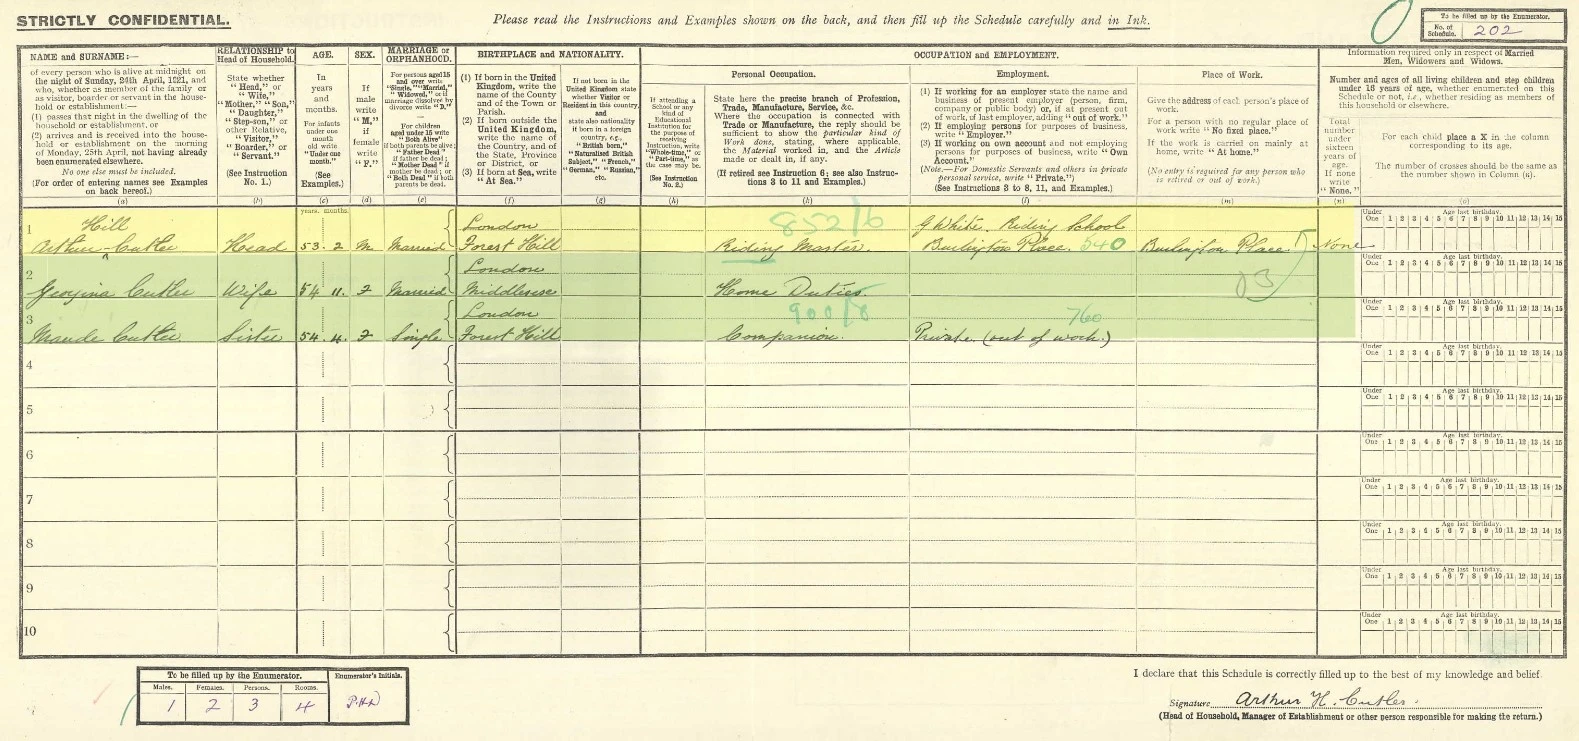 STRICTLY CONFIDENTIAL.
Please read the Instructions and Examples shown on the back, and then fill up the Schedule carefully and in Ink.
To be filled up by the Enumerator.
No. of Schedule. 202
NAME and SURNAME:—
of every person who is alive at midnight on
the night of Sunday, 24th April, 1921, and
who, whether as member of the family or
as visitor, boarder or servant in the house-
hold or establishment:—
(1) passes that night in the dwelling of
the household or establishment, or
(2) arrives and is received into the house-
hold or establishment on the morning
of Monday, 25th April, not having already
been enumerated elsewhere.
No one else must be included.
(For order of entering names see Examples
on back hereof.)
(a)
RELATIONSHIP to
Head of Household.
State whether
"Head," or
"Wife,"
"Mother," "Son,"
"Daughter,"
"Step-son," or
other Relative,
"Visitor,"
"Boarder," or
"Servant."
(See Instruction
No. 1.)
(b)
AGE.
In
years
and
months.
For infants
under one
month
old write
"Under one
month."
(See
Examples.)
(c)
SEX.
If
male
write
"M.,"
if
female
write
"F."
(d)
MARRIAGE or
ORPHANHOOD.
For persons aged 15
and over write
"Single," "Married,"
"Widowed," or if
marriage dissolved by
divorce write "D."
For children
aged under 15 write
"Both Alive"
if both parents be alive;
"Father Dead"
if father be dead;
"Mother Dead" if
mother be dead; or
"Both Dead" if both
parents be dead.
(e)
BIRTHPLACE and NATIONALITY.
(1) If born in the United
Kingdom, write the
name of the County
and of the Town or
Parish.
(2) If born outside the
United Kingdom,
write the name of
the Country, and of
the State, Province
or District, or
(3) If born at Sea, write
"At Sea."
(f)
If not born in the
United Kingdom state
whether Visitor or
Resident in this country,
and
state also nationality
if born in a foreign
country, e.g.,
"British born,"
"Naturalised British
Subject," "French,"
"German," "Russian,"
etc.
(g)
OCCUPATION and EMPLOYMENT.
If attending a
School or any
kind of
Educational
Institution for
the purpose of
receiving
Instruction, write
"Whole-time," or
"Part-time," as
the case may be.
(See Instruction
No. 2.)
(h)
Personal Occupation.
State here the precise branch of Profession,
Trade, Manufacture, Service, &c.
Where the occupation is connected with
Trade or Manufacture, the reply should be
sufficient to show the particular kind of
Work done, stating, where applicable,
the Material worked in, and the Article
made or dealt in, if any.
(If retired see Instruction 6; see also Instruc-
tions 3 to 11 and Examples.)
(k)
Employment.
(1) If working for an employer state the name and
business of present employer (person, firm,
company or public body) or, if at present out
of work, of last employer, adding "out of work."
(2) If employing persons for purposes of business,
write "Employer."
(3) If working on own account and not employing
persons for purposes of business, write "Own
Account."
(Note.—For Domestic Servants and others in private
personal service, write "Private.")
(See Instructions 3 to 8, 11, and Examples.)
(l)
Place of Work.
Give the address of each person's place of
work.
For a person with no regular place of
work write "No fixed place."
If the work is carried on mainly at
home, write "At home."
(No entry is required for any person who
is retired or out of work.)
(m)
Information required only in respect of Married
Men, Widowers and Widows.
Number and ages of all living children and step children
under 16 years of age, whether enumerated on this
Schedule or not, i.e., whether residing as members of
this household or elsewhere.
Total
number
under
sixteen
years of
age.
If none
write
"None."
(n)
For each child place a X in the column
corresponding to its age.
The number of crosses should be the same as
the number shown in Column (n).
(o)
years. months.
1 Hill
Arthur ^ Cutler Head 53.2 M Married London
Forest Hill
852/6
Riding Master.
G White. Riding School
Burlington Place. 540
Burlington Place. None
2
Georgina Cutler Wife 54 11. F Married London
Middlesex Home Duties
3
Maude Cutler Sister 54.4. F Single London
Forest Hill
900/8
Companion.
760
Private. (out of work.)
4
5
6
7
8
9
10
Under One 1 2 3 4 5 6 7 8 9 10 11 12 13 14 15
Age last birthday.
To be filled up by the Enumerator.
Males. Females. Persons. Rooms.
1 2 3 4
Enumerator's Initials.
I declare that this Schedule is correctly filled up to the best of my knowledge and belief.
Signature Arthur H. Cutler.
(Head of Household, Manager of Establishment or other person responsible for making the return.)